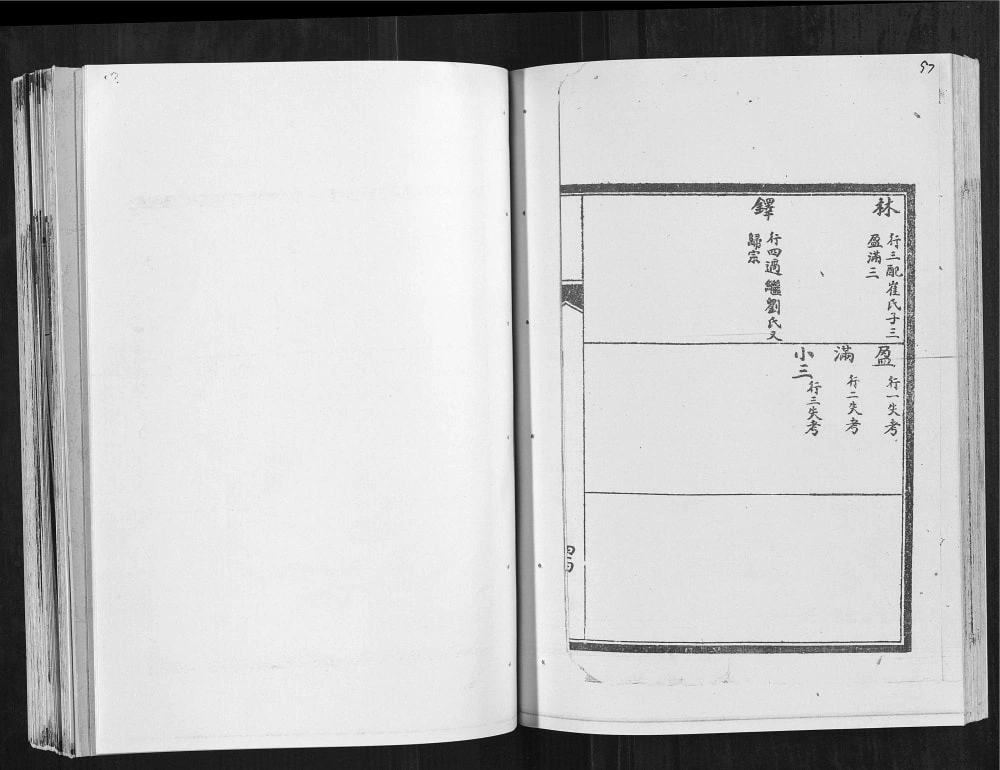 57
林
行三配崔氏子三
盈滿三
鐸
行四過繼劉氏又
歸宗
盈
行一失考
滿
行二失考
小三
行三失考